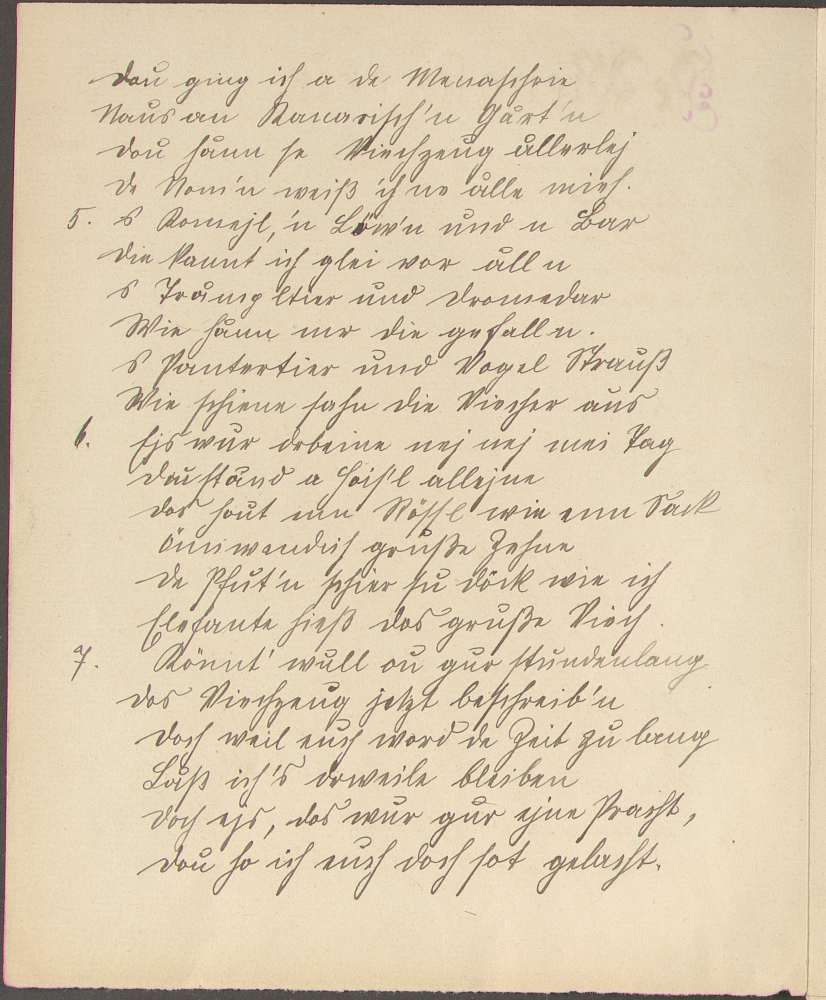 Dou ging ich a de Menaschrie
Naus an Kanarisch'n Gårt'n
Dou hånn se Viechzeug ållerlej
De Nom'n weiß ich ne ålle mieh.
5. s Komejl, 'n Löw'n und n Bär
Die kannt ich glei vor ålln
s Tråmpltier und Dromedar
Wie hånn mr die gefalln.
s Pantertier und Vogel Strauß
Wie schiene sahn die Viecher aus
6. Ejs wur drbeine nej nej mei Tag
Dou stånd a Heis'l allejne
Dos hout enn Rössl wie enn Sack
Önnwendich gruße Zehne
De Pfut'n schier su döck wie ich
Elefante hieß dos gruße Viech.
7. Könnt' wull ou gur stundenlang
Dos Viechzeug jetzt beschreib'n
Doch weil euch word de Zeit zu lang
Låß ich's drweile bleiben
Doch ejs, dos wur gur ejne Pracht,
Dou ho ich euch doch sot gelacht.